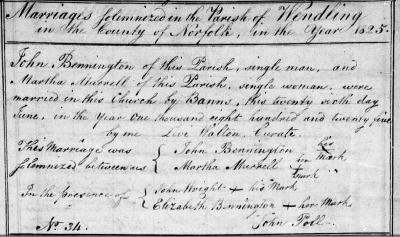 Marriages solemnized in the Parish of Wendling
in the County of Norfolk, in the Year 1825.
John Bennington of this Parish, single man, and
Martha Murrell of this Parish, single woman, were
married in this Church by Banns, this twenty sixth day
June, in the year One thousand eight hundred and twenty five
by me Live Valton, Curate.
This Marriage was solemnized between us { John Bennington his Mark
Martha Murrell + Mark
In the Presence of { John Wright + his Mark
Elizabeth Bennington + her Mark
No. 34. John Poll